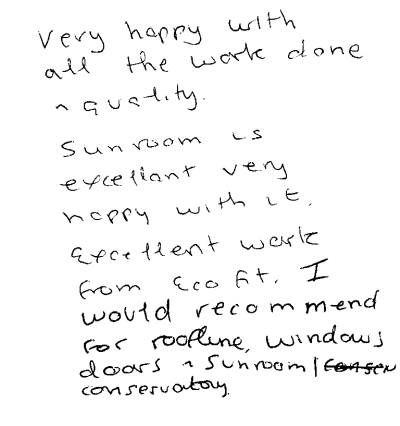 Very happy with
all the work done
^ quality.
Sunroom is
excellant very
happy with it.
Excellent work
from Eco fit. I
would recommend
for roofline, windows
doors ^ sunroom |
conservatory.